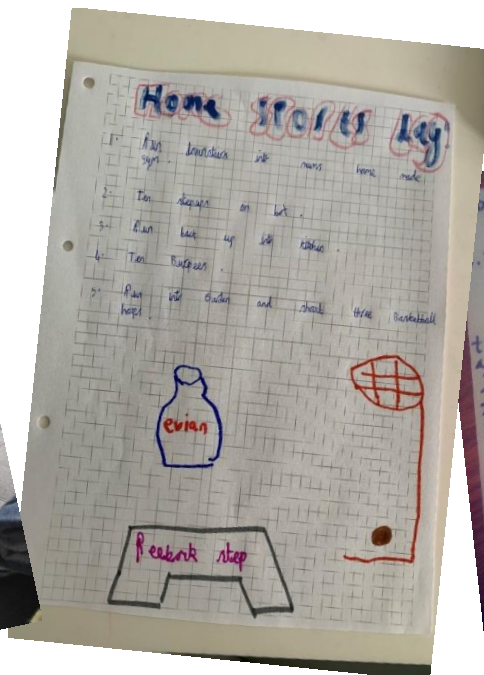 Home Sports Day
1. Run downstairs into mums home made
gym.
2. Ten stepups on box.
3. Run back up into kitchen.
4. Ten Burpees.
5. Run into Garden and shoot three Basketball
hoops
evian
Reebork step